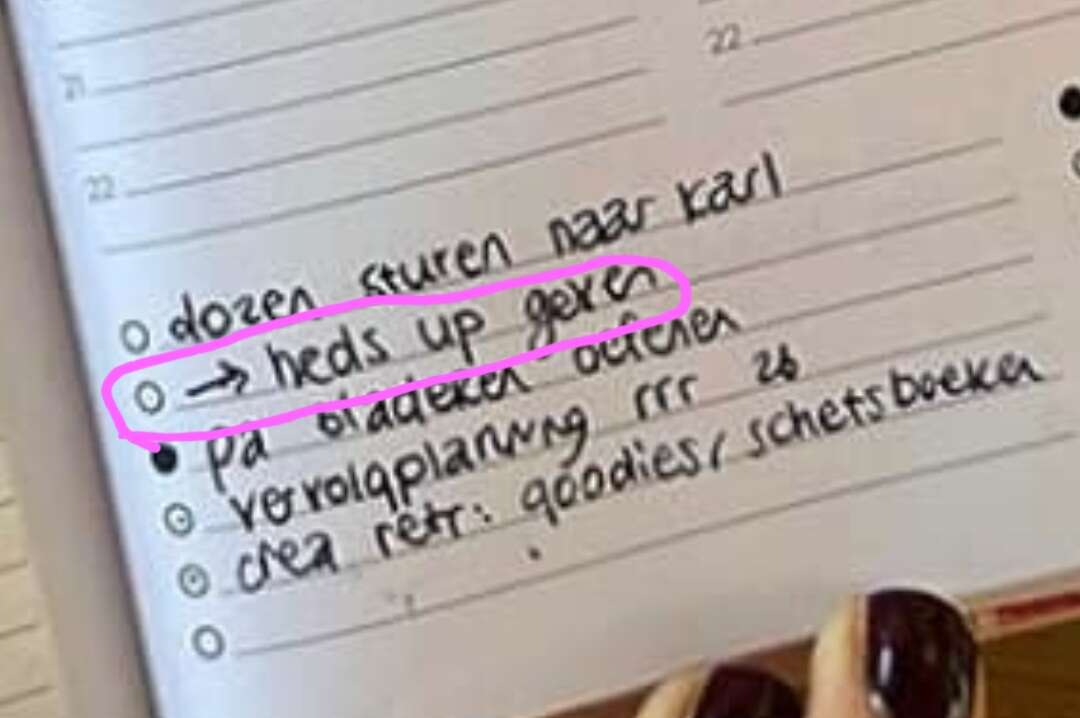 21
22
22
dozen sturen naar Karl
→ heds up geven
pa bladeren oefenen
vervolgplanning rrr 26
crea retr: goodies/schetsboeken